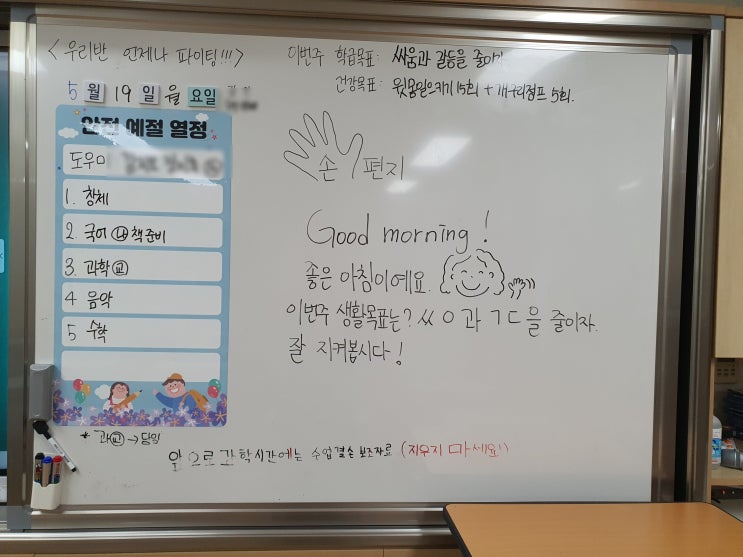 <우리반 언제나 파이팅!!!>
이번주 학급목표: 싸움과 갈등을 줄이자
건강목표: 윗몸일으키기 15회 + 개구리점프 5회.
5월 19일 월요일
안전 예절 열정
도우미
1. 창체
2. 국어 ㉯ 책준비
3. 과학 ㉠
4 음악
5 수학
손 편지
Good morning!
좋은 아침이에요.
이번주 생활목표는? ㅆㅇ과 ㄱㄷ을 줄이자.
잘 지켜봅시다!
* 과 → 담임
앞으로 과학시간에는 수업결손 보조자료 (지우지 마세요!)